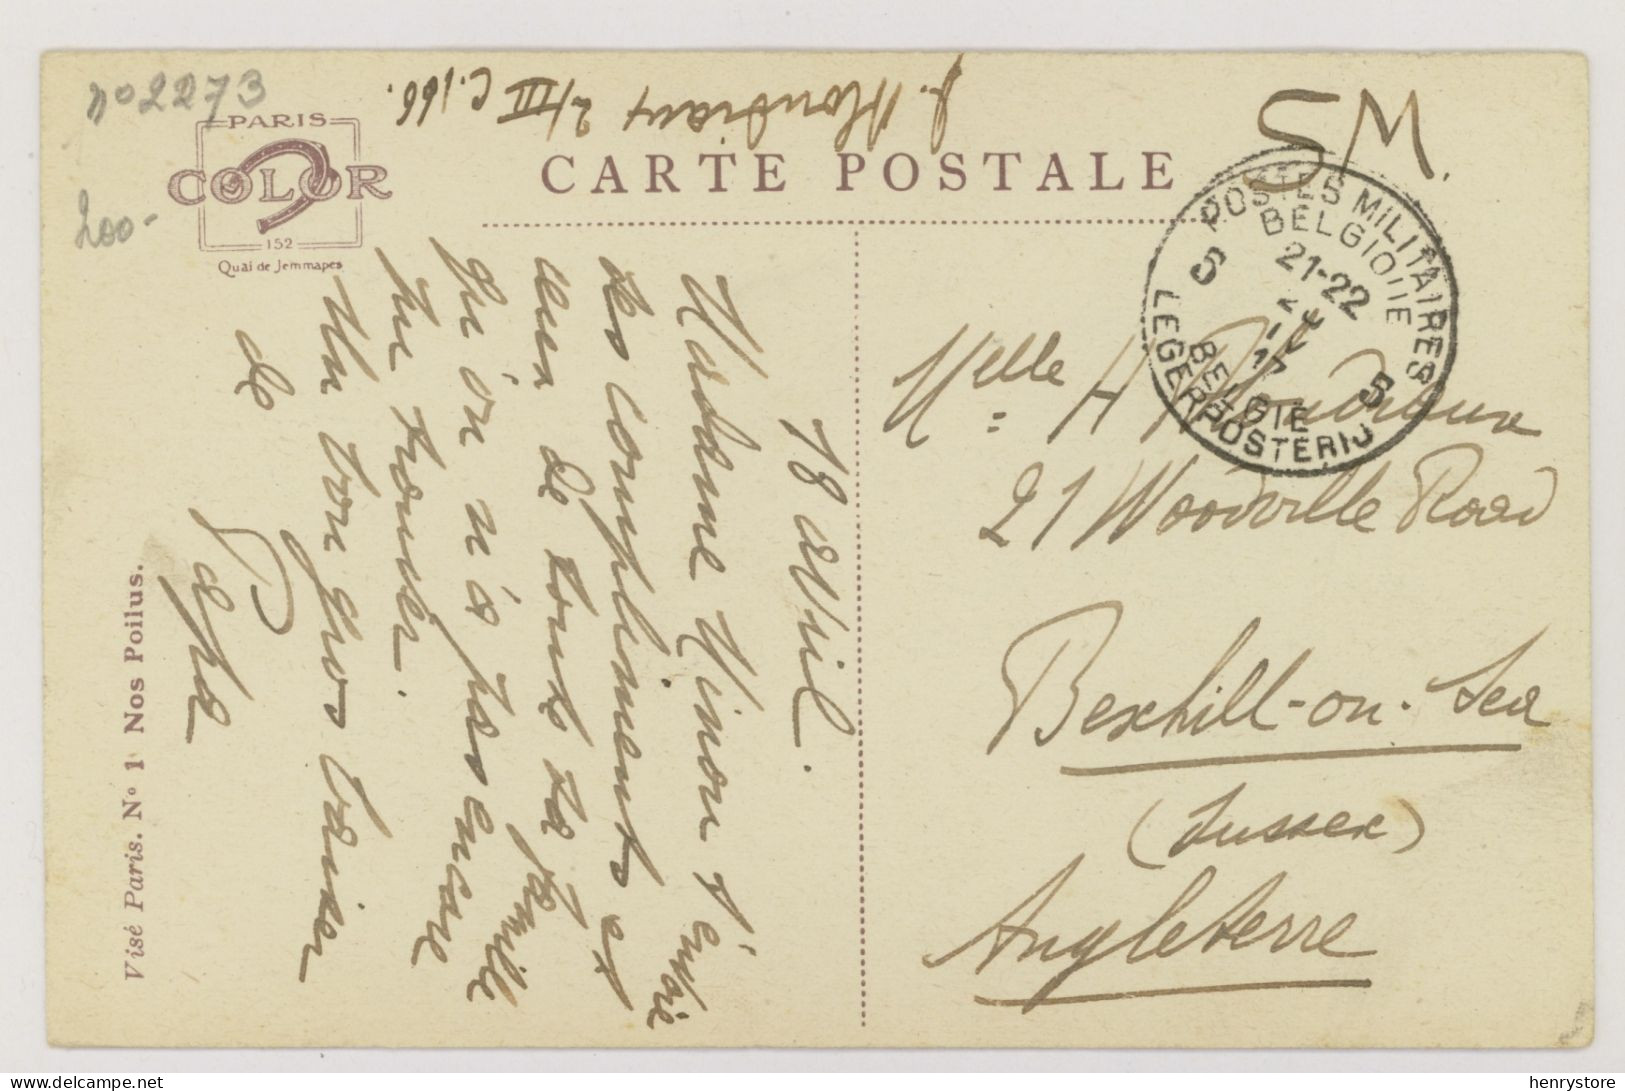 n° 2273
200-
PARIS
COLOR
152
Quai de Jemmapes
2/III C.166.
CARTE POSTALE
S M.
POSTES MILITAIRES
BELGIQUE
21-22
17
5 5
BELGIE
LEGERPOSTERIJ
18 avril.
Madame Minon t'envoie
ses compliments et
ceux de toute sa famille
qu'on n'a pas encore
pu trouver.
Un bon gros baiser
de
Papa
Melle H
21 Woodville Road
Bexhill-on-Sea
(Sussex)
Angleterre
Visé Paris. N° 1 Nos Poilus.
henrystore
delcampe.net